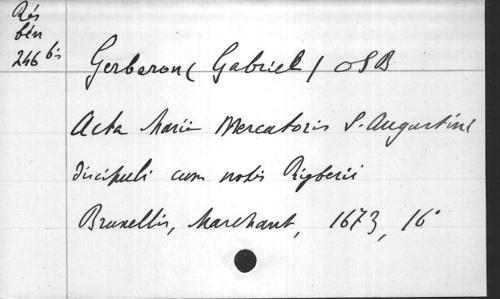 Rés
bén
246 bis
Gerberon (Gabriel) OSB
Acta Marii Mercatoris S. Augustini
discipuli cum notis Rigberii
Bruxellis, Marchant, 1673, 16°